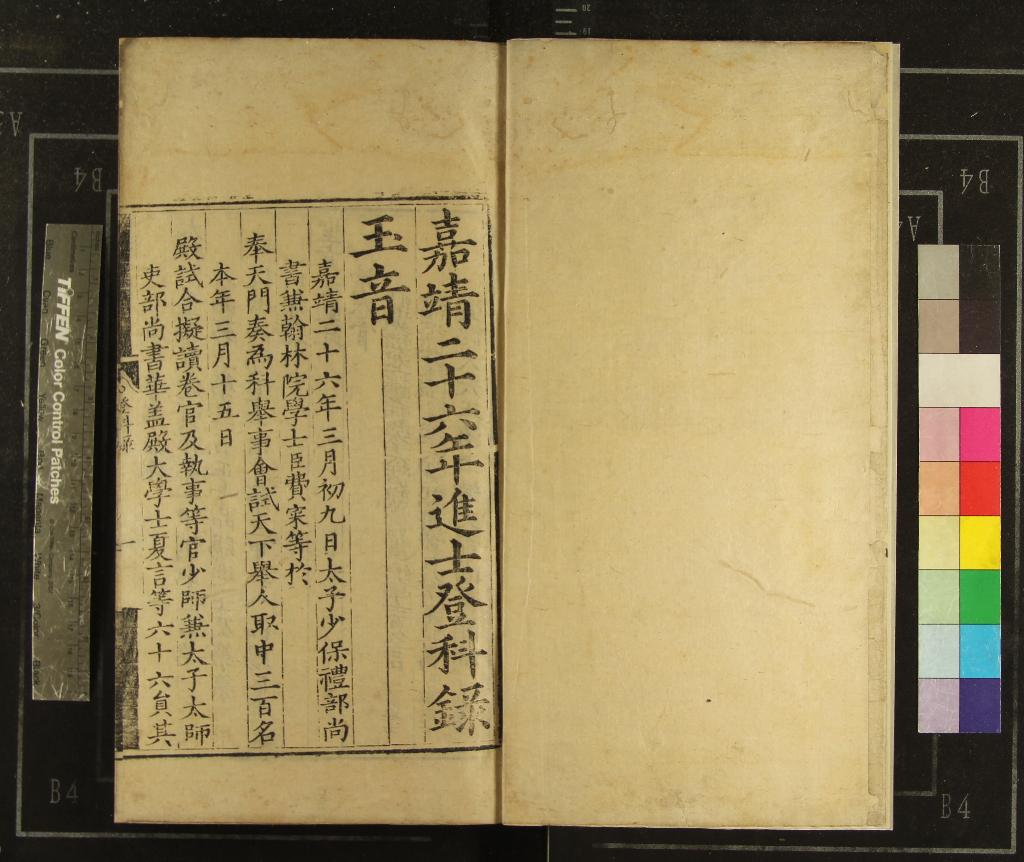 嘉靖二十六年進士登科錄
玉音
嘉靖二十六年三月初九日太子少保禮部尚
書兼翰林院學士臣費寀等於
奉天門奏爲科舉事會試天下舉人取中三百名
本年三月十五日
殿試合擬讀卷官及執事等官少師兼太子太師
吏部尚書華盖殿大學士夏言等六十六員其
登科錄
一
TIFFEN Color Control Patches
B4
B4
B4
B4
A4
A3